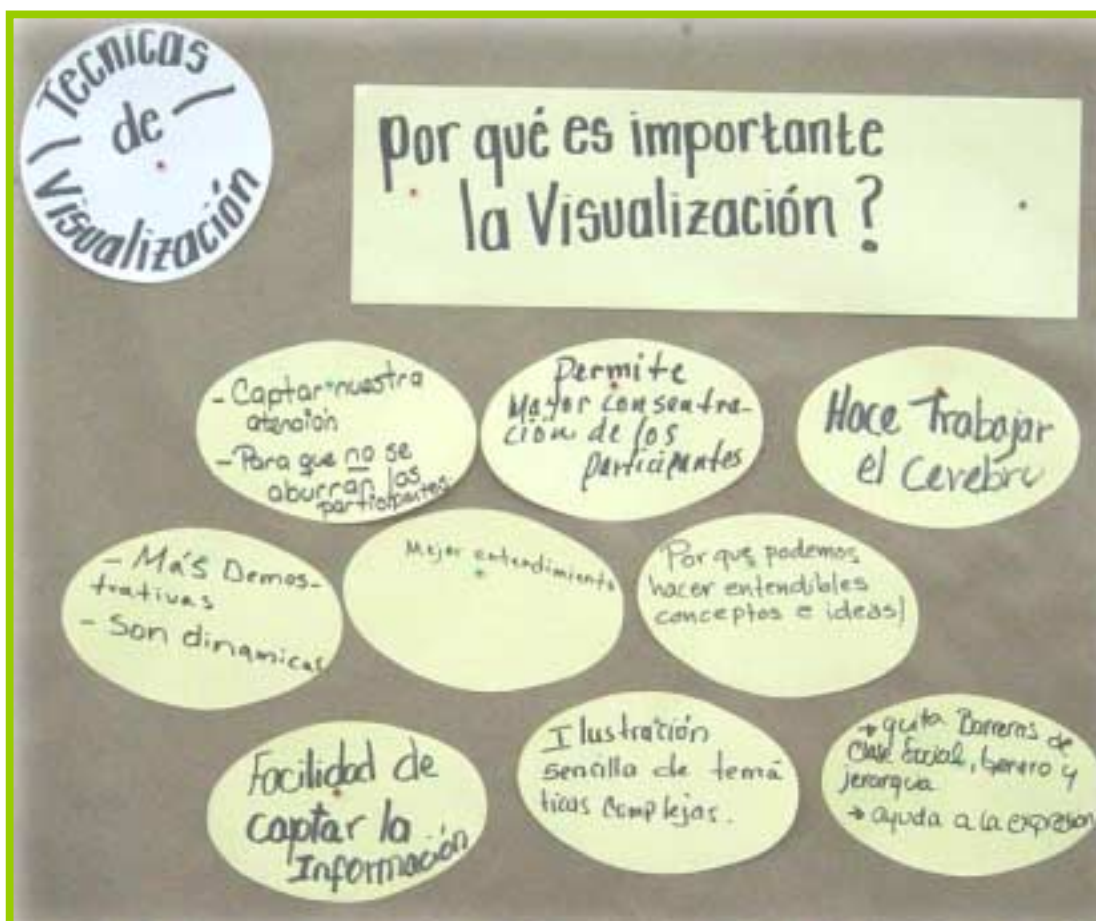 Tecnicas
de
Visualización
Por qué es importante
la Visualización ?
- Captar nuestra
atención
- Para que no se
aburran los
participantes.
Permite
Mayor consentra-
ción de los
participantes
Hace Trabajar
el Cerebro
- Más Demos-
trativas
- Son dinamicas
Mejor entendimiento
Por que podemos
hacer entendibles
conceptos e ideas
Facilidad de
captar la
Información
Ilustración
sencilla de temá
ticas complejas.
→ quita Barreras de
Clase Social, Genero y
jerarquia
→ ayuda a la expresion